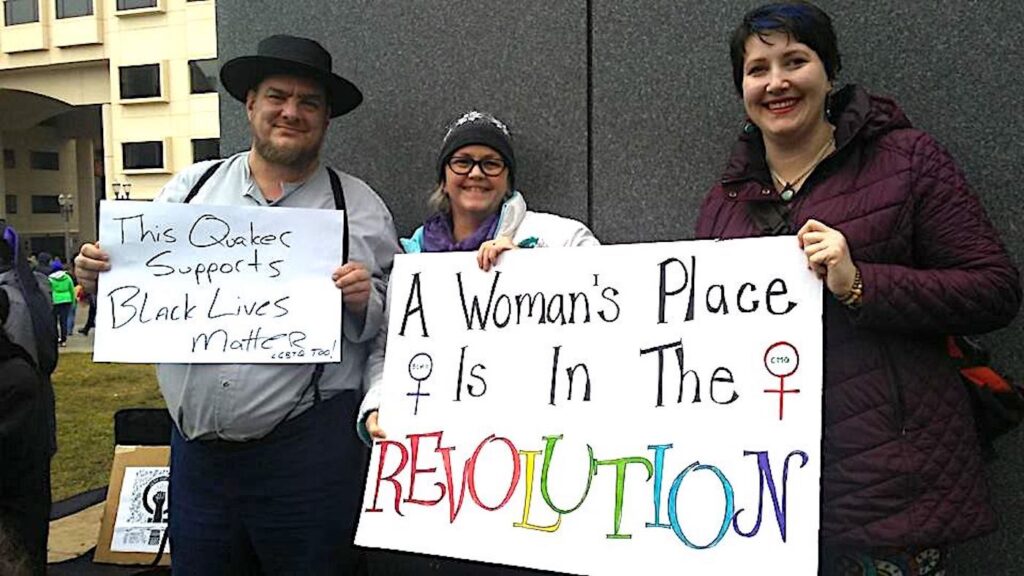 This Quaker
Supports
Black Lives
Matter
LGBTQ TOO!
A Woman's Place
Is In The
REVOLUTION
CMG